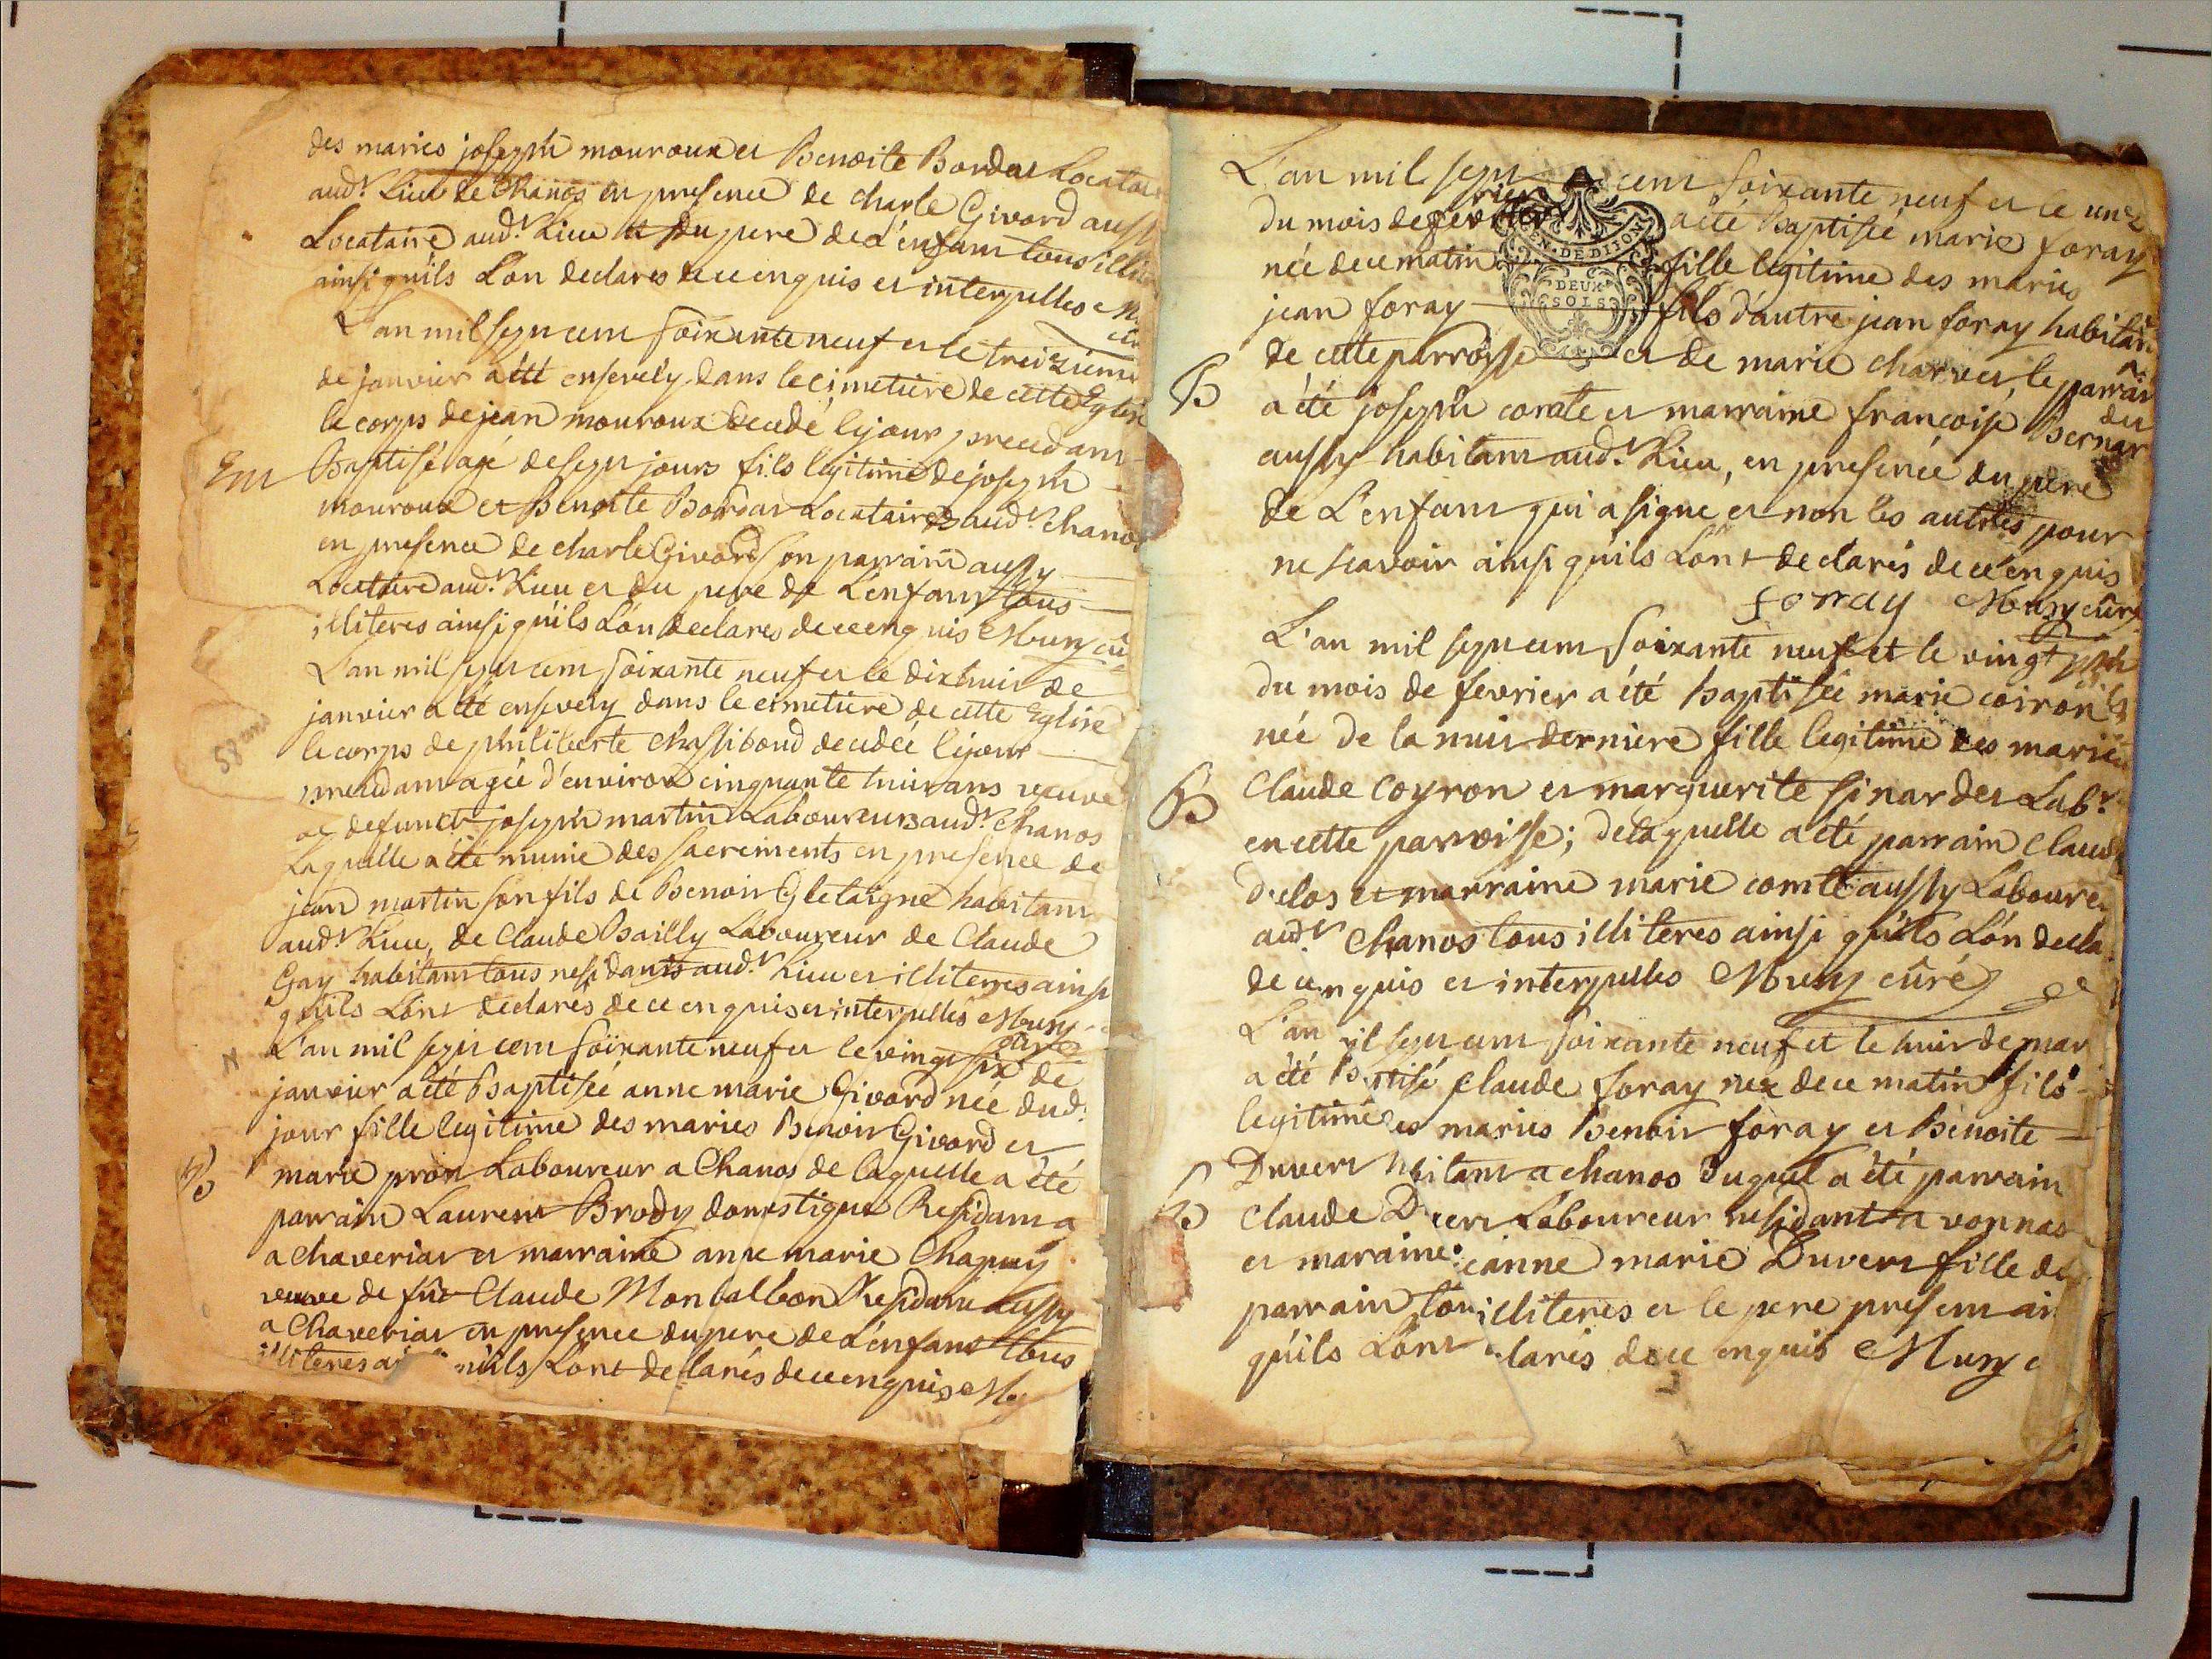 des maries joseph mouroux et Benoite Bordat Locatai
aud.t Lieu de Chanos en presence de charle Givord aussy
Locataire aud.t Lieu et du pere de L'enfant tous illi
ainsi qu'ils L'on declares de ce enquis et interpelles M
L'an mil sept cent soixante neuf et le treizieme
de janvier a été ensevely dans le cimetiere de cette Eglise
le corps de jean mouroux decedé le jour precedant
Em
Baptisé agé de sept jours fils legitime de joseph
mouroux et Benoite Bordat Locataires aud.t Chanos
en presence de charle Givord son parrain aussy
Locataire aud.t Lieu et du pere de L'enfant tous
illiteres ainsi qu'ils L'on declares de ce enquis Muny cu
L'an mil sept cent soixante neuf et le dixhuit de
janvier a été ensevely dans le cimetiere de cette Eglise
58 ans
le corps de philiberte Chassiboud decedée le jour
precedant agée d'environ cinquante huit ans veuve
de defunct joseph martin Laboureurs aud.t Chanos
Laquelle a été munie des sacrements en presence de
jean martin son fils de Benoit Gletaigne habitant
aud.t Lieu, de Claude Bailly Laboureur de Claude
Gay habitant tous residants aud.t Lieu et illiteres ainsi
qu'ils L'ont declarés de ce enquis et interpellés Muny
curé
N
L'an mil sept cent soixante neuf et le vingt six de
janvier a été Baptisée anne marie Givord née dud.
jour fille legitime des maries Benoit Givord et
B
marie pron Laboureur a Chanos de laquelle a été
parrain Laurent Brody domestique Residant a
a chaveriat et marraine anne marie Chapuy
veuve de fut Claude Monballbon Residant aussy
a Chaveriat en presence du pere de L'enfant tous
illiteres qu'ils L'ont declarés de ce enquis
L'an mil sept cent soixante neuf et le
du mois de fevrier a été Baptisée marie foray
EN. DE DIJON
née de ce matin fille legitime des maries
DEUX
SOLS
jean foray fils d'autre jean foray habitan
de cette parroisse et de marie charvet le parrain
B
a été joseph corate et marraine francoise Bernar
det
aussy habitant aud.t Lieu, en presence du pere
de L'enfant qui a signé et non les autres pour
ne scavoir ainsi qu'ils L'ont declarés de ce enquis
forray Muny curé
L'an mil sept cent soixante neuf et le vingt
du mois de fevrier a été baptisée marie coiron
née de la nuit derniere fille legitime des maries
B
Claude Coyron et marguerite sinardet Lab.r
en cette parroisse; de laquelle a été parrain Claud
duclos et marraine marie comte aussy Laboure
aud.t Chanos tous illiteres ainsi qu'ils L'on decla
de ce enquis et interpelles Muny curé
L'an mil sept cent soixante neuf et le huit de mar
a été Baptisé Claude foray née de ce matin fils
legitime des maries Benoit foray et Benoite
Duvert habitant a chanos duquel a été parrain
B
Claude Duvert Laboureur residant a vonnas
et maraine jeanne marie Duvert fille du
parrain tous illiteres et le pere present ain
qu'ils L'ont declarés de ce enquis Muny c